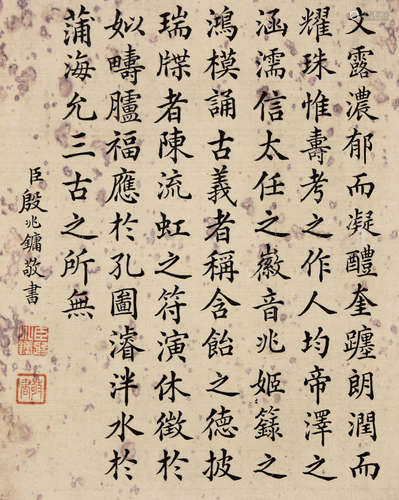 文露濃郁而凝醴奎躔朗潤而
耀珠惟壽考之作人均帝澤之
涵濡信太任之徽音兆姬籙之
鴻模誦古義者稱含飴之德披
瑞牒者陳流虹之符演休徵於
姒疇臚福應於孔圖濬泮水於
蒲海允三古之所無
臣殷兆鏞敬書